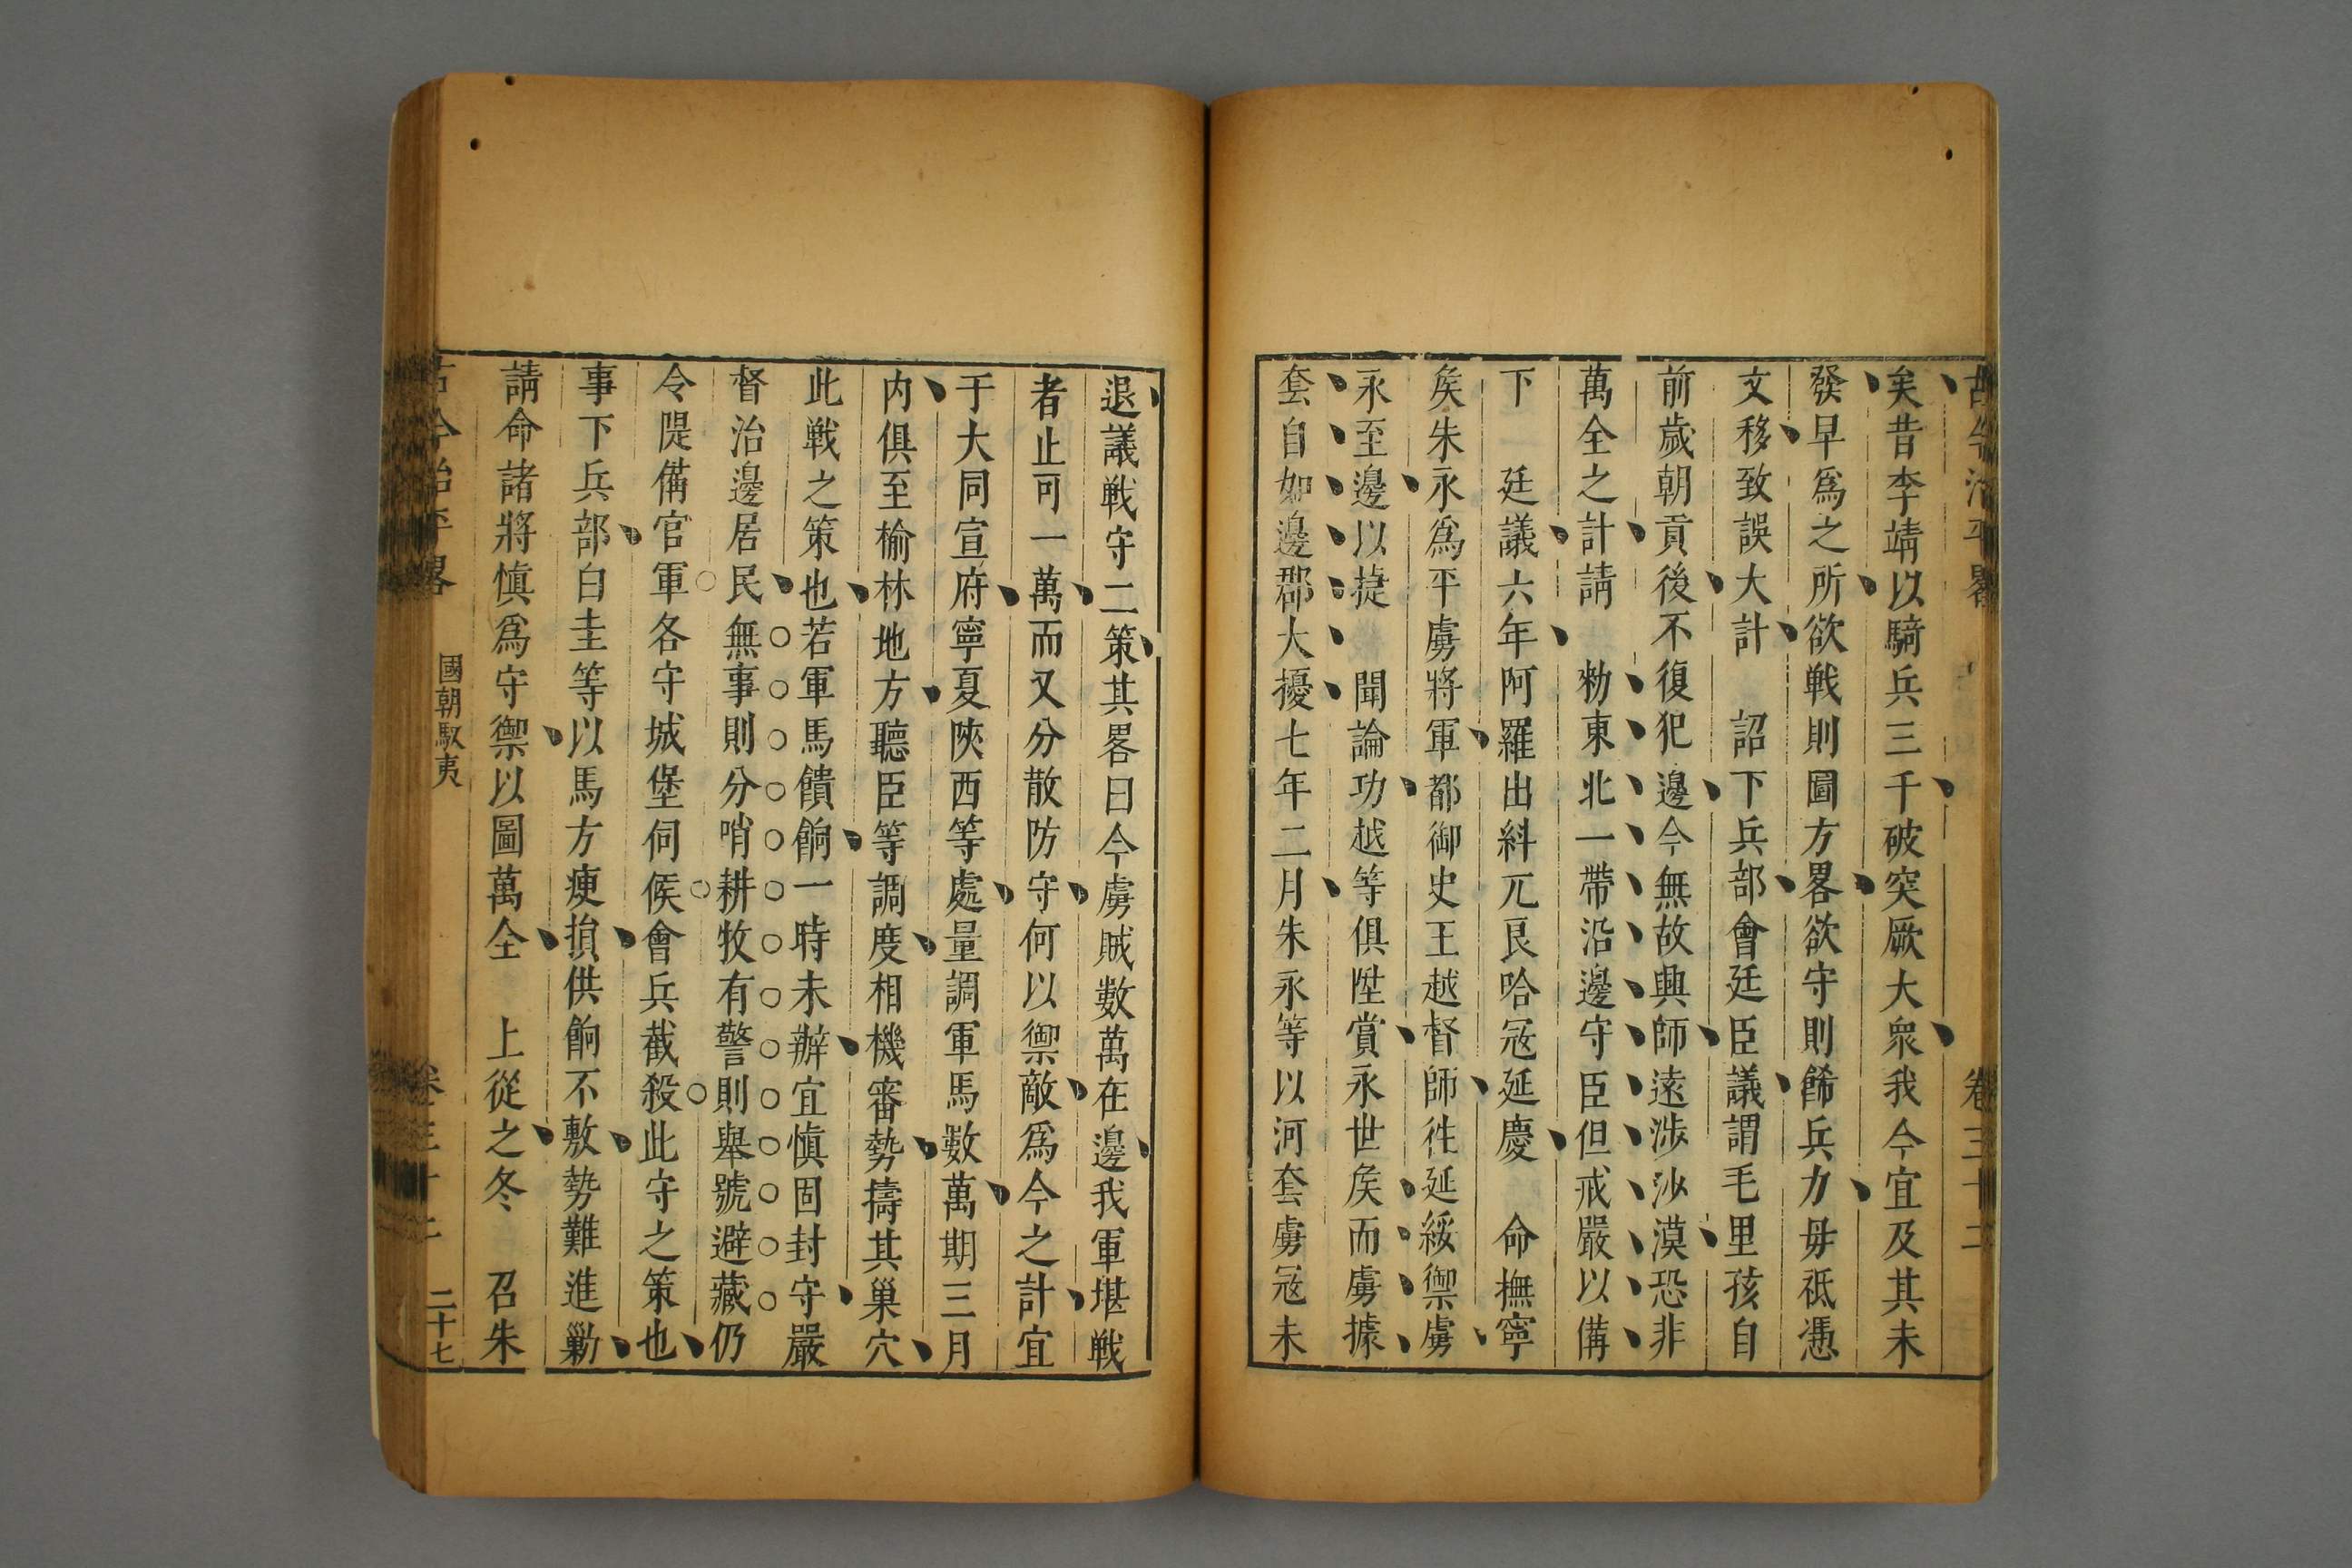 古今治平畧 卷三十二
矣昔李靖以騎兵三千破突厥大衆我今宜及其未
發早爲之所欲戦則圖方畧欲守則餙兵力毋祗憑
文移致誤大計 詔下兵部會廷臣議謂毛里孩自
前歲朝貢後不復犯邊今無故興師遠涉沙漠恐非
萬全之計請 勑東北一帶沿邊守臣但戒嚴以備
下 廷議六年阿羅出糾兀良哈冦延慶 命撫寧
矦朱永爲平虜將軍都御史王越督師徃延綏禦虜
永至邊以捷 聞論功越等俱陞賞永世矦而虜據
套自如邊郡大擾七年二月朱永等以河套虜冦未
退議戦守二策其畧曰今虜賊數萬在邊我軍堪戦
者止可一萬而又分散防守何以禦敵爲今之計宜
于大同宣府寧夏陜西等處量調軍馬數萬期三月
内俱至榆林地方聽臣等調度相機審勢擣其巢穴
此戦之策也若軍馬饋餉一時未辦宜慎固封守嚴
督治邊居民無事則分哨耕牧有警則舉號避藏仍
令隄備官軍各守城堡伺候會兵截殺此守之策也
事下兵部白圭等以馬方瘐損供餉不敷勢難進勦
請命諸將慎爲守禦以圖萬全 上從之冬 召朱
古今治平畧 國朝馭夷 卷三十二 二十七